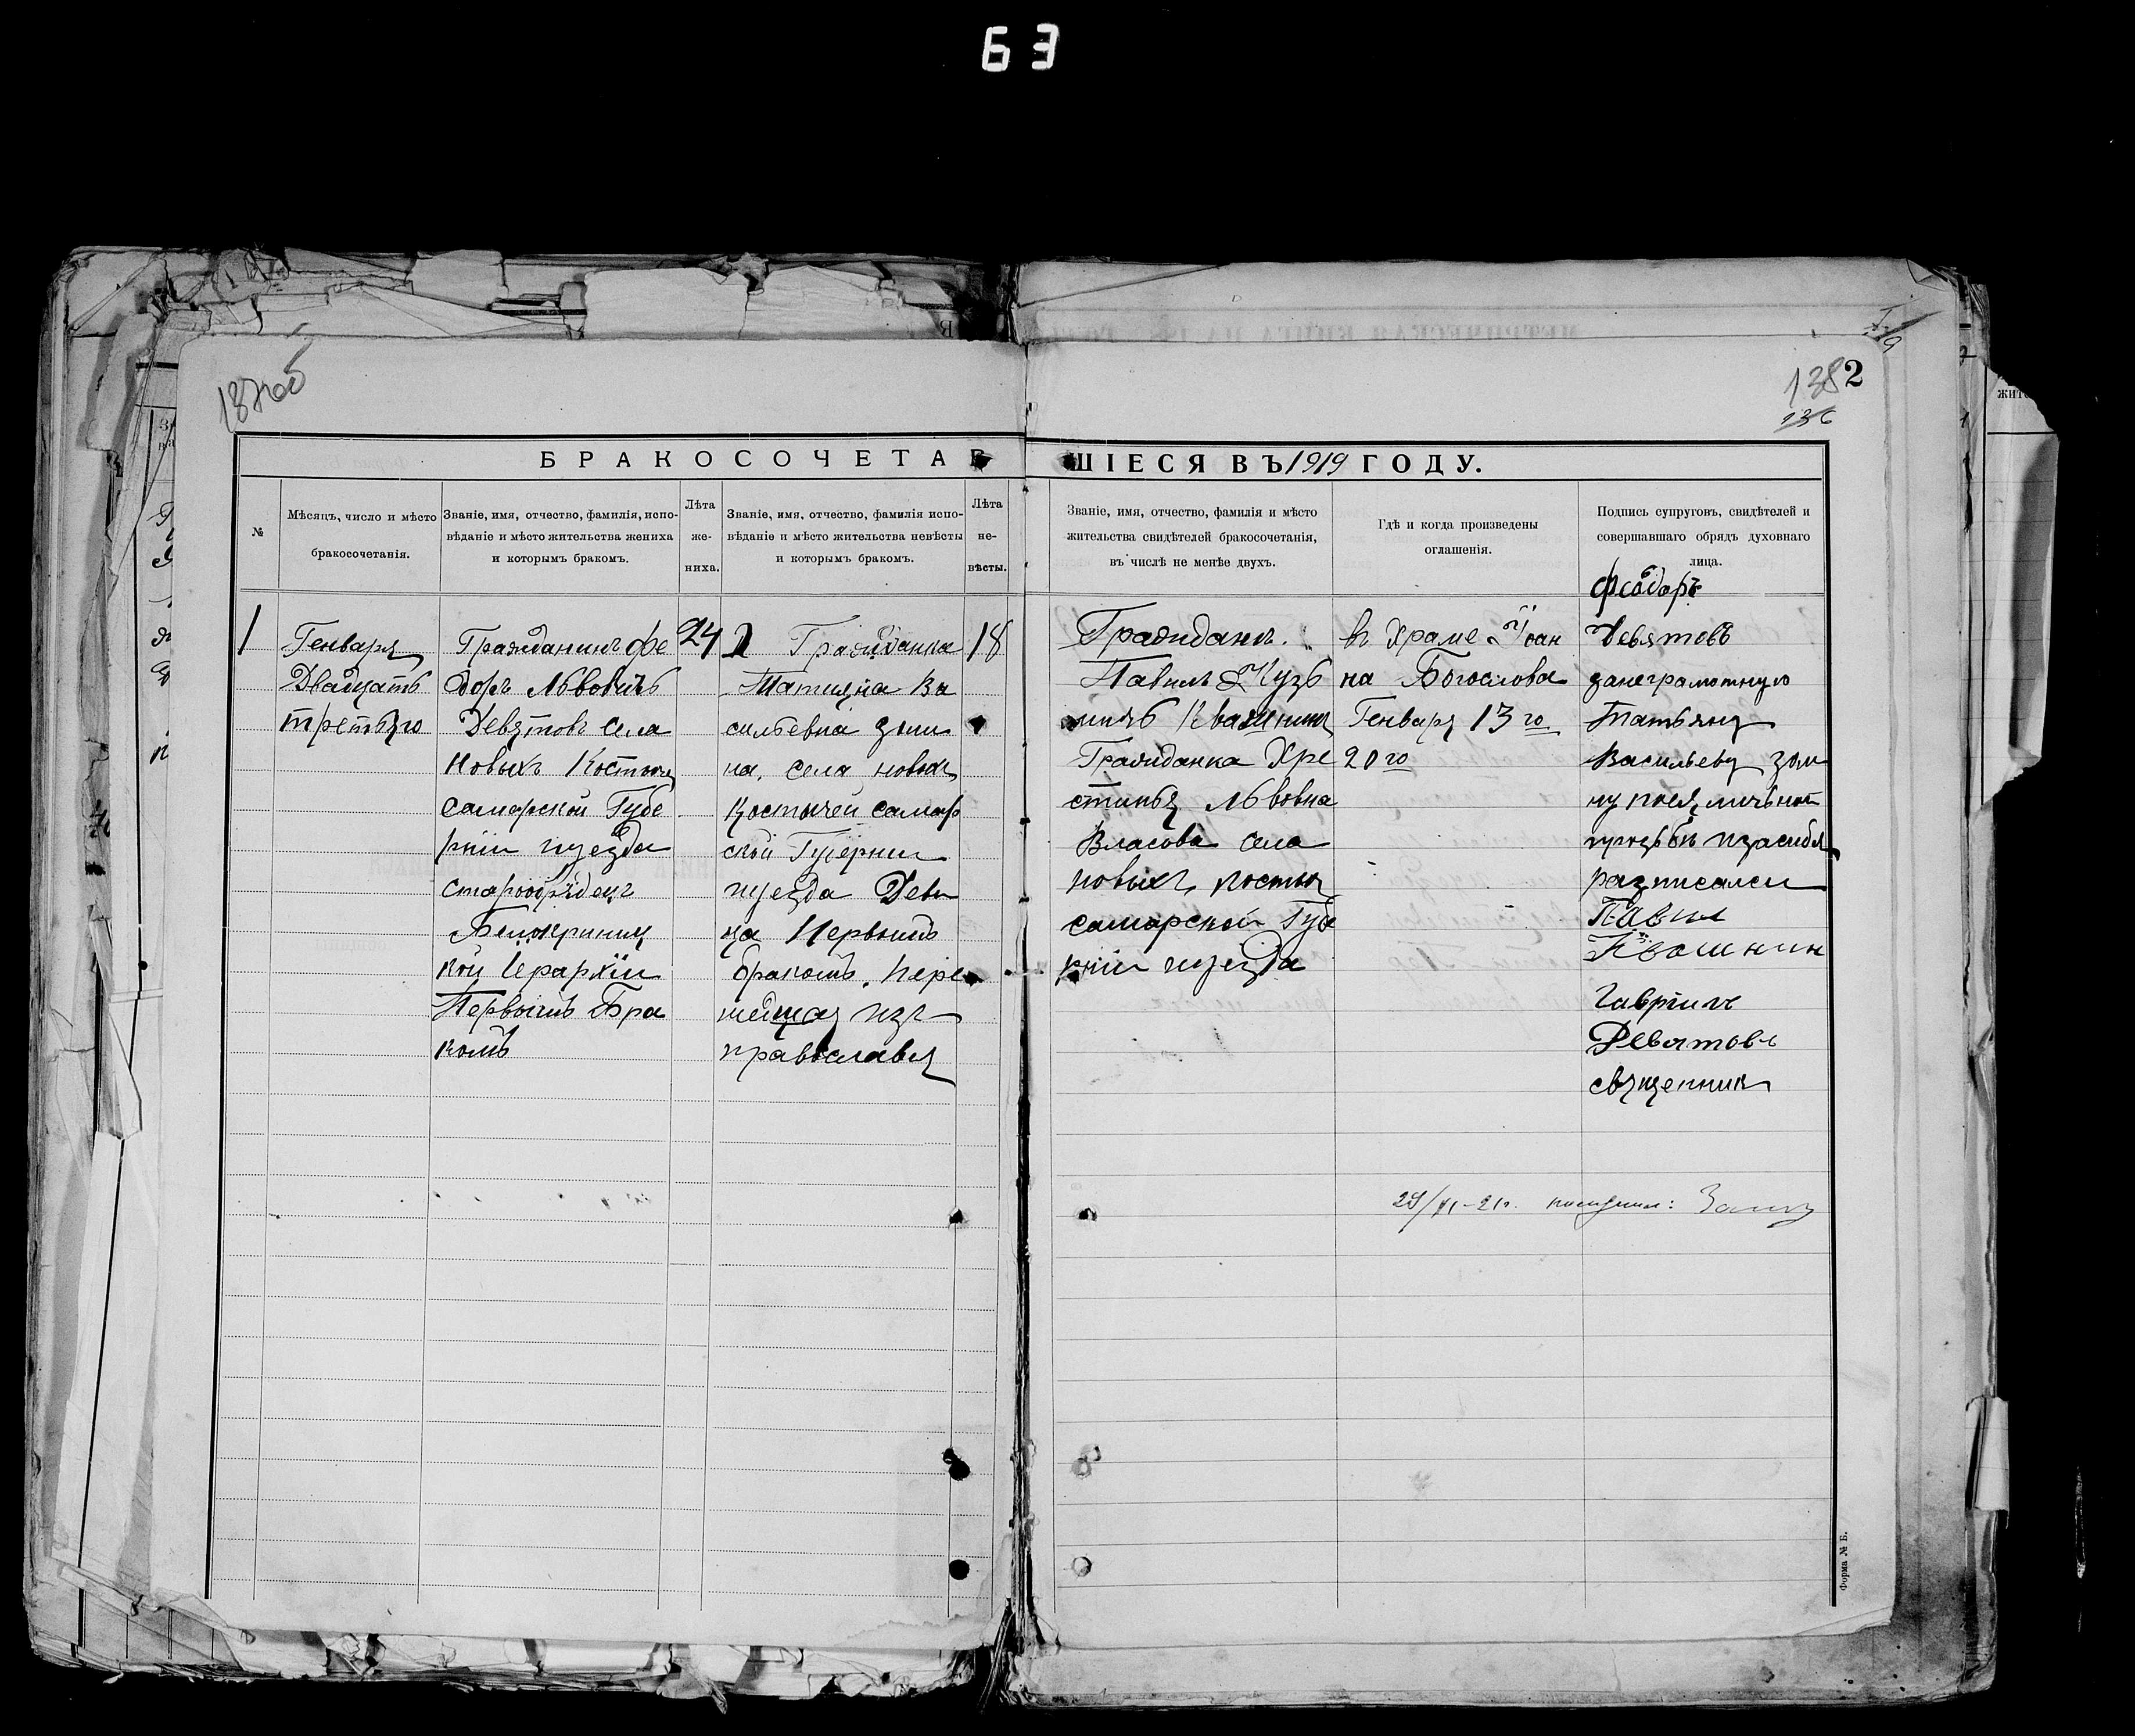 63
137об
138 2
136
БРАКОСОЧЕТАВ ШІЕСЯ ВЪ 1919 ГОДУ.
№
Мѣсяцъ, число и мѣсто
бракосочетанія.
Званіе, имя, отчество, фамилія, испо-
вѣданіе и мѣсто жительства жениха
и которымъ бракомъ.
Лѣта
же-
ниха.
Званіе, имя, отчество, фамилія испо-
вѣданіе и мѣсто жительства невѣсты
и которымъ бракомъ.
Лѣта
не-
вѣсты.
Званіе, имя, отчество, фамилія и мѣсто
жительства свидѣтелей бракосочетанія,
въ числѣ не менѣе двухъ.
Гдѣ и когда произведены
оглашенія.
Подпись супруговъ, свидѣтелей и
совершавшаго обрядъ духовнаго
лица.
1
Генваря
Двадцать
третьяго
Гражданинъ Фе
одоръ Львовичъ
Девятовъ села
Новыхъ Костыч
самарской Губе
рніи и уезда
старообрядецъ
Белокриниц
кой Ирархіи
Первымъ Бра
комъ
24
Гражданка
Татияна Ва
сильевна зѵми
на. села новых
Костычей самар
ской Губерни
и уезда Деви
ца Первымъ
бракомъ. Пере
шедшая изъ
православия
18
Гражданъ.
Павилъ Кузь
мичъ Квашнин
Гражданка Хре
стинья Львовна
Власова села
новыхъ костыч
самарской Губе
рніи и уезда
въ Храме Іоан
на Богослова
Генваря 13 го
20 го
Феодоръ
Девятовъ
занеграмотную
Татьяну
Васильеву зѵми
ну поея личьной
прозьбе изасибя
разписался
Павил
Квашнин
Гавріилъ
Девятовъ
священник
29/VI-21г.
Форма № Б.